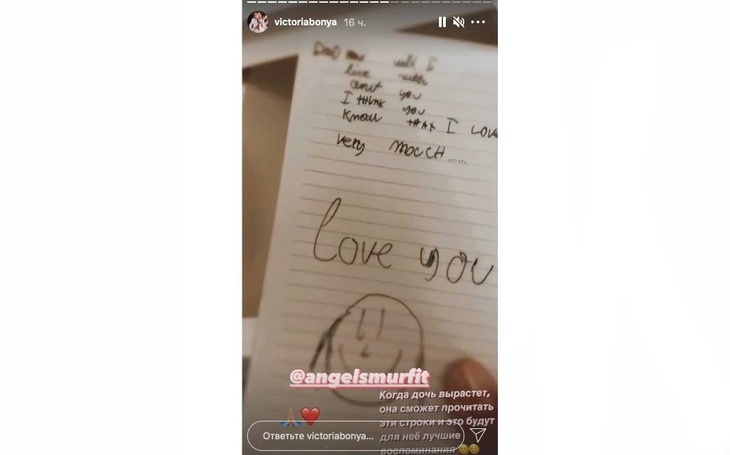 victoriabonya 16 ч.
Dad will I
live with
you
I think you
know that I LOVE
very mocch.....
love you
@angelsmurfit
Когда дочь вырастет,
она сможет прочитать
эти строки и это будут
для неё лучшие
воспоминания
Ответьте victoriabonya...